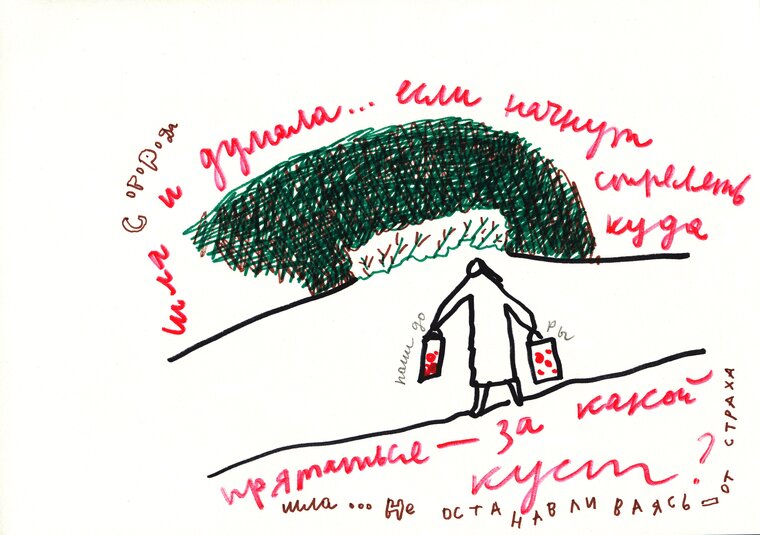 С огорода
шла и думала... если начнут
стрелять
куда
прятаться — за какой
куст?
наши да
ры
шла ... не останавливаясь — от страха